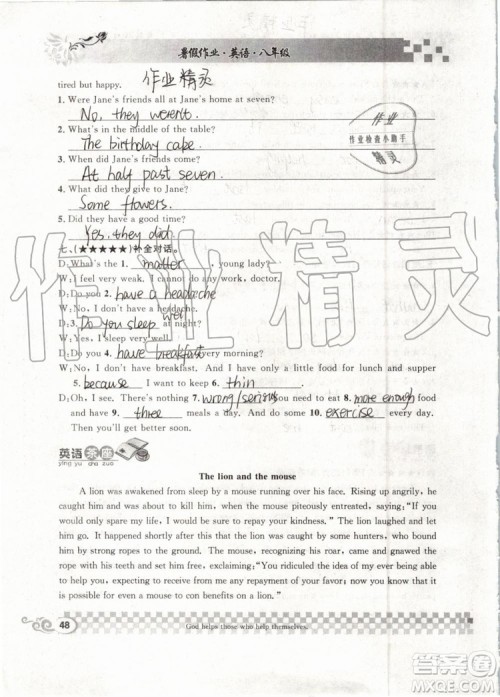 暑假作业·英语·八年级
tired but happy. 作业精灵
1. Were Jane's friends all at Jane's home at seven?
No, they weren't.
2. What's in the middle of the table?
The birthday cake.
3. When did Jane's friends come?
At half past seven.
4. What did they give to Jane?
Some flowers.
5. Did they have a good time?
Yes, they did.
作业
作业检查小助手
精灵
七、(★★★★★)补全对话。
D:What's the 1. matter, young lady?
W:I feel very weak. I cannot do any work, doctor.
D:Do you 2. have a headache
W:No, I don't have a headache.
D:3. Do you sleep well at night?
W:Yes. I sleep very well.
D:Do you 4. have breakfast every morning?
W:No, I don't have breakfast. And I have only a little food for lunch and supper
5. because I want to keep 6. thin.
D:Oh, I see. There's nothing 7. wrong/serious you. You need to eat 8. more enough food
and have 9. three meals a day. And do some 10. exercise every day.
Then you'll get better soon.
英语茶座
ying yu cha zuo
The lion and the mouse
A lion was awakened from sleep by a mouse running over his face. Rising up angrily, he
caught him and was about to kill him, when the mouse piteously entreated, saying: "If you
would only spare my life, I would be sure to repay your kindness." The lion laughed and let
him go. It happened shortly after this that the lion was caught by some hunters, who
bound him by strong ropes to the ground. The mouse, recognizing his roar, came and gnawed the rope
with his teeth and set him free, exclaiming: "You ridiculed the idea of my ever being able
to help you, expecting to receive from me any repayment of your favor; now you know that
it is possible for even a mouse to confer benefits on a lion."
48
God helps those who help themselves.
作业精灵
答案圈
MXQE.COM